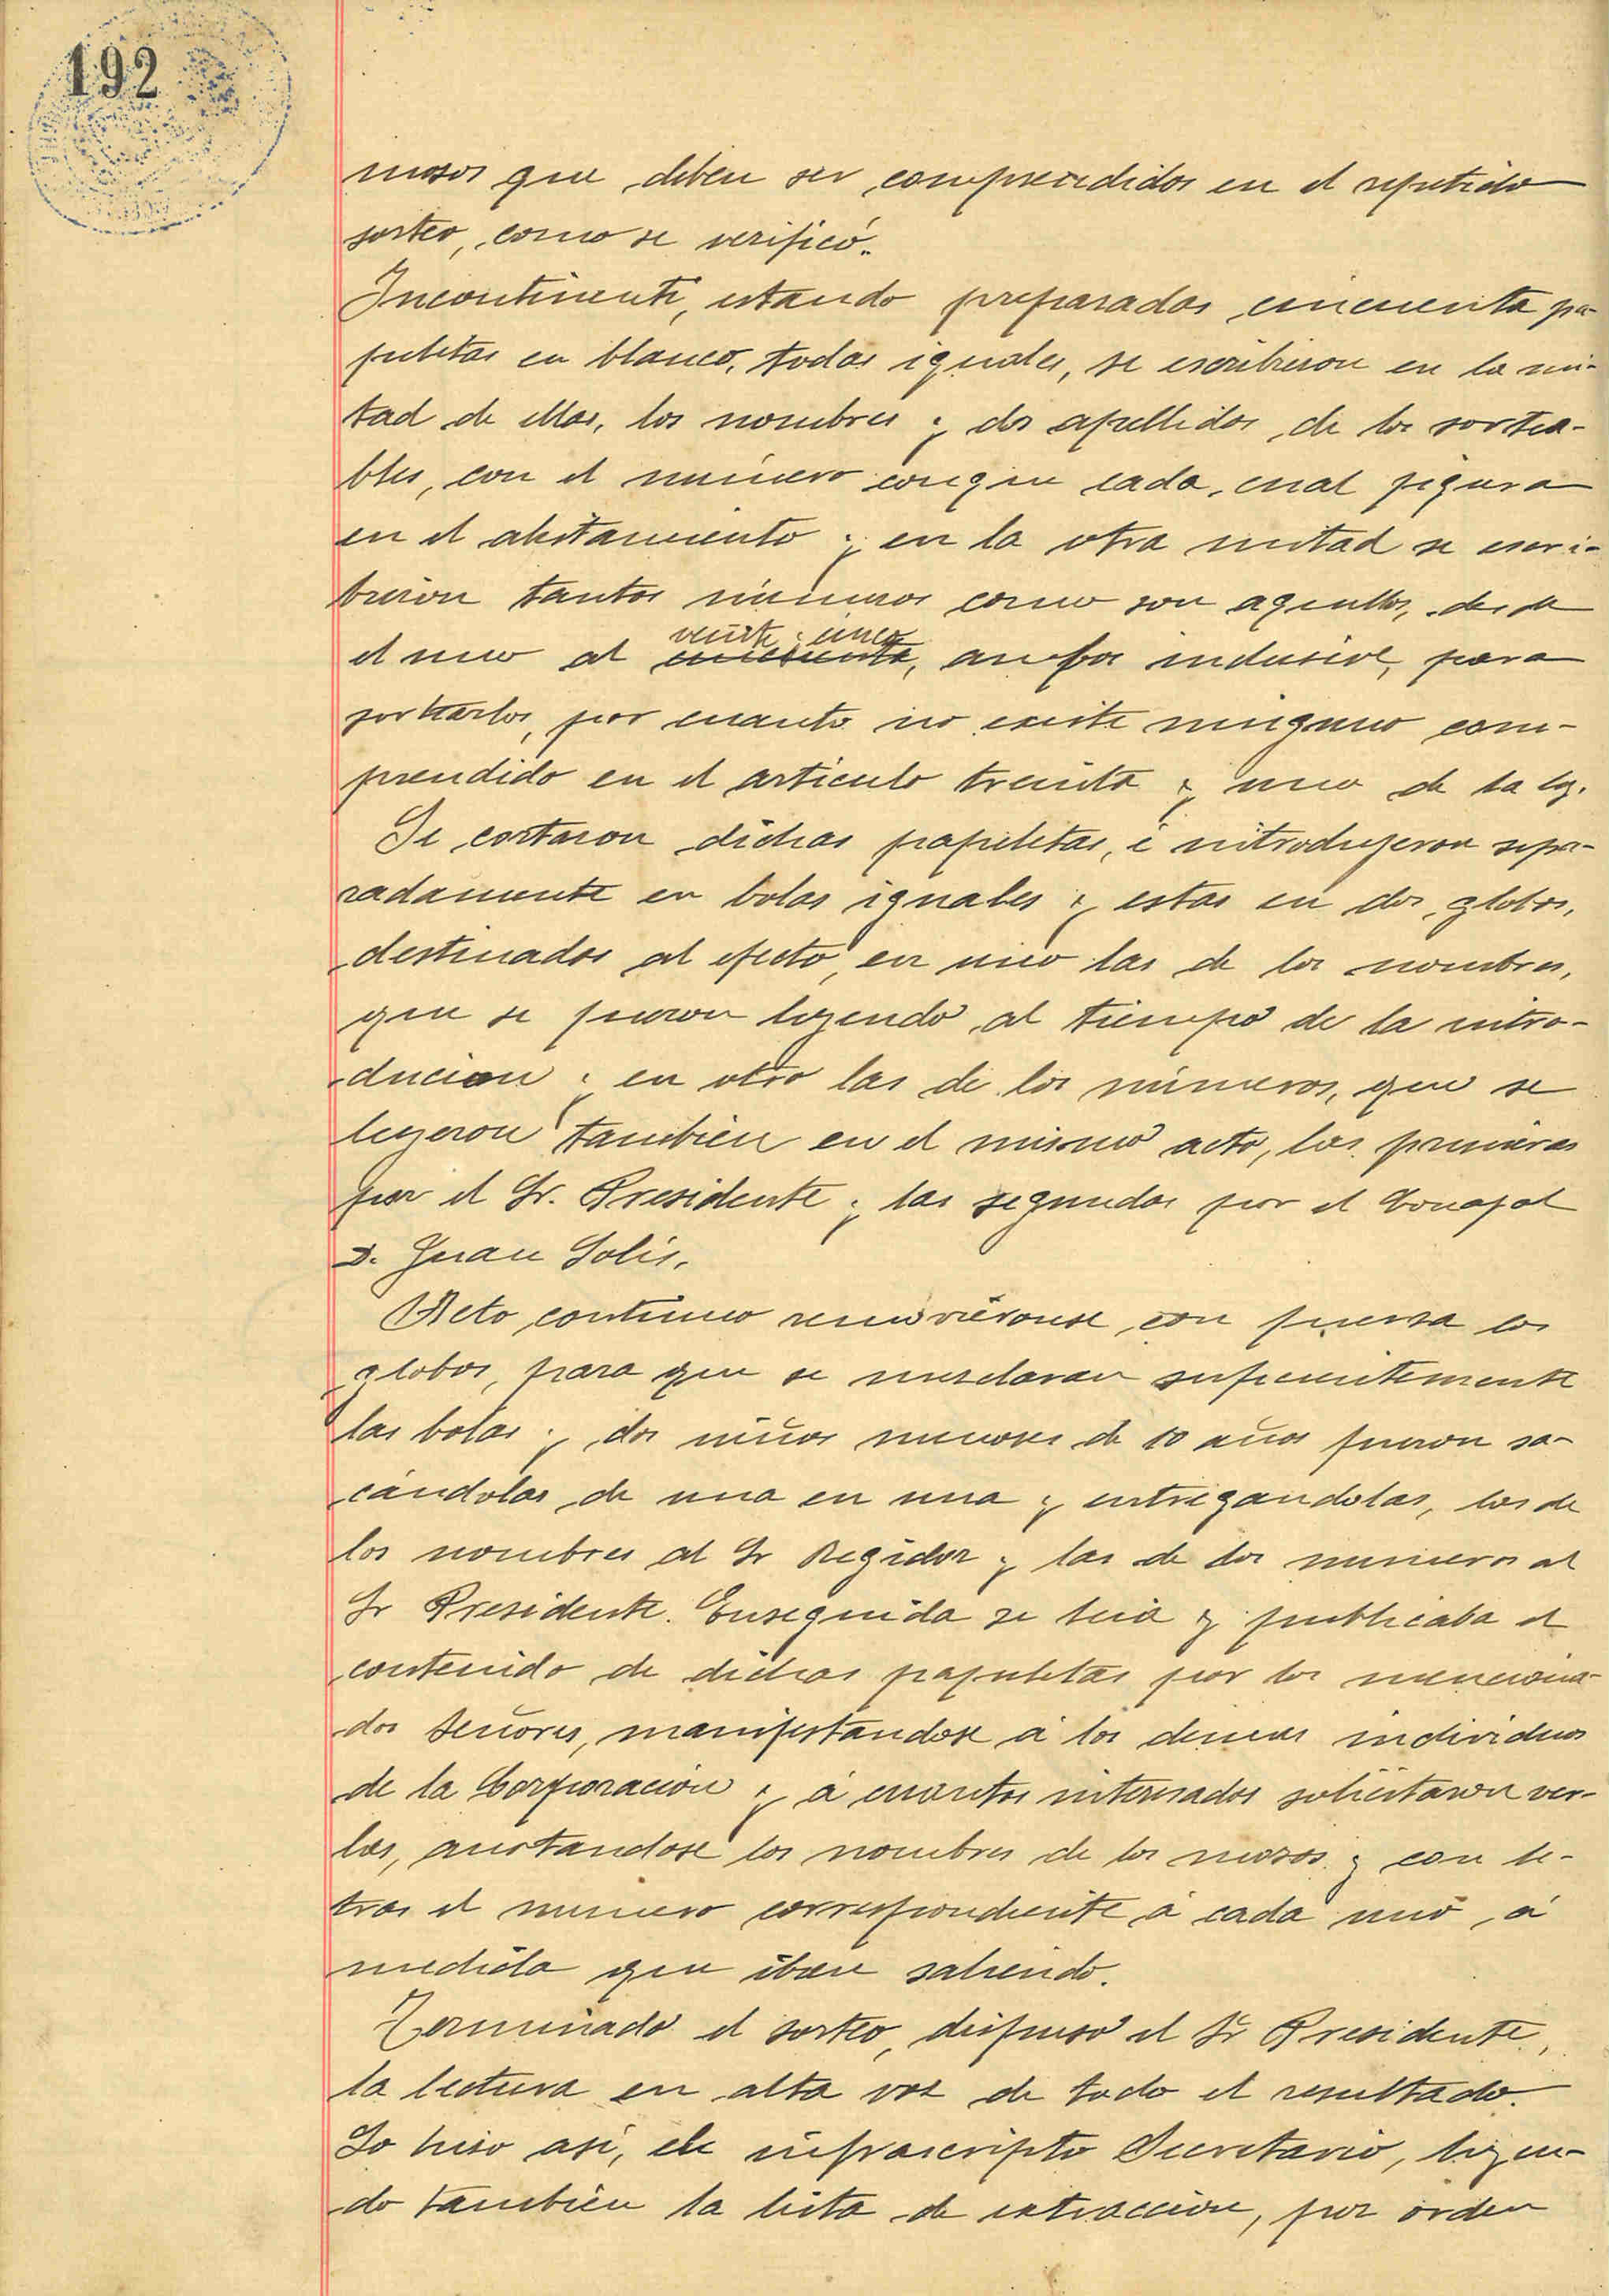 192
mosos que deben ser comprendidos en el repetido
sorteo, como se verificó.
Incontinenti, estando preparadas cincuenta pa-
peletas en blanco, todas iguales, se escribieron en la mi-
tad de ellas, los nombres y dos apellidos de los sortea-
bles, con el número conque cada cual figura
en el alistamiento y en la otra mitad se escri-
bieron tantos números como son aquellos, desde
veinte y cinco
el uno al cincuenta, ambos inclusive, para
sortearlos, por cuanto no existe ninguno com-
prendido en el articulo treinta y uno de la ley.
Se cortaron dichas papeletas, é introdujeron sepa-
radamente en bolas iguales y estas en dos globos,
destinados al efecto, en uno las de los nombres,
que se fueron leyendo al tiempo de la intro-
ducion y en otro las de los números, que se
leyeron tambien en el mismo acto, las primeras
por el Sr. Presidente y las segundas por el Concejal
D. Juan Solis.
Acto continuo removiéronse con fuersa los
globos, para que se mesclaran suficientemente
las bolas y dos niños menores de 10 años fueron sa-
cándolas de una en una y entregandolas, las de
los nombres al Sr Regidor y las de los numeros al
Sr Presidente. Enseguida se leia y publicaba el
contenido de dichas papeletas por los menciona-
dos Señores, manifestandose á los demas individuos
de la Corporación y á cuantos interesados solicitaron ver-
las, anotandose los nombres de los mosos y con le-
tras el numero correspondiente á cada uno, á
medida que iban saliendo.
Terminado el sorteo, dispuso el Sr Presidente,
la lectura en alta vos de todo el resultado.
Lo hiso asi, el infrascripto Secretario, leyen-
do tambien la lista de extraccion, por orden